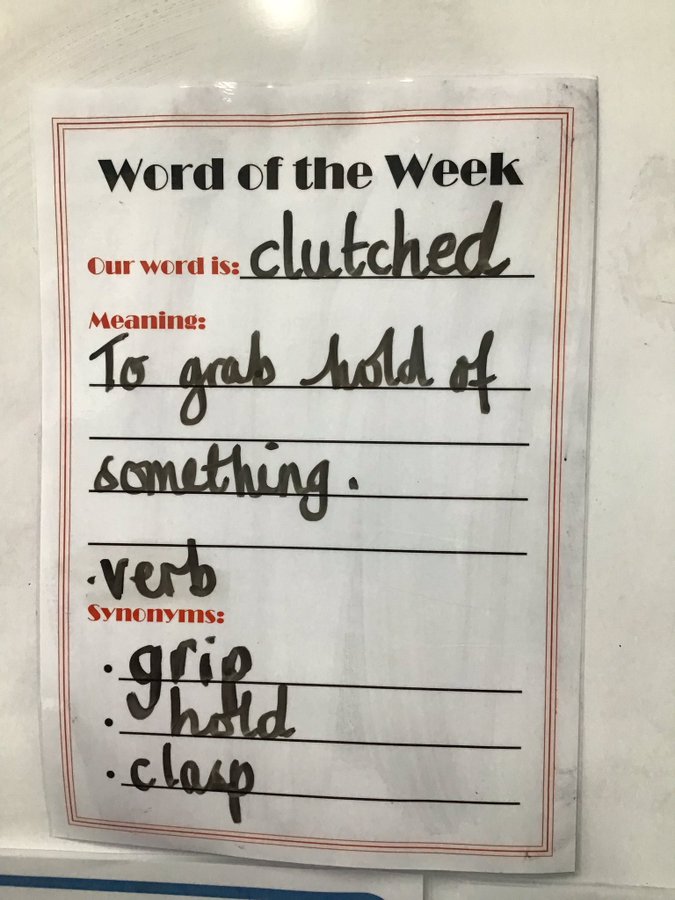 Word of the Week
Our word is: clutched
Meaning:
To grab hold of
something.
• verb
Synonyms:
• grip
• hold
• clasp